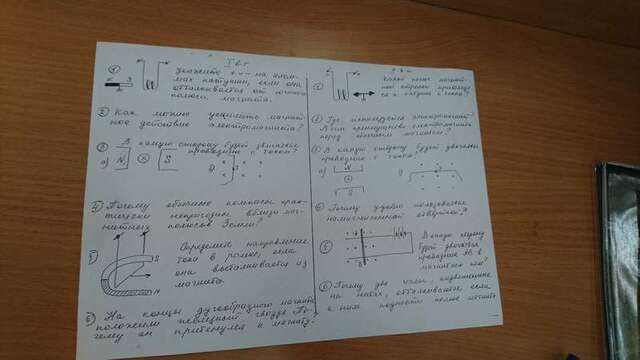 I в-т
① Укажите + и - на клем-
мах катушки, если она
отталкивается от южного
полюса магнита.
② Как можно усилить магнит-
ное действие электромагнита?
③ В какую сторону будет двигаться
проводник с током?
а) N S
④ Почему обычно компасы прак-
тически непригодны вблизи маг-
нитных полюсов Земли?
⑤ Определите направление
тока в рамке, если
она выталкивается из
магнита.
S
N
⑥ На концы дугообразного магнита
положили гвоздь. По-
чему он к магниту.
Какой полюс магнит-
ной стрелки
② Где используются электромагниты?
В чем преимущество электромагнита
перед магнитом?
③ В какую сторону будет двигаться
проводник с током?
а) N
S
④ Почему удобно пользоваться
намагниченной отвёрткой?
⑤ В какую сторону
будет двигаться
проводник АВ в
магнитном поле?
⑥ Почему две иглы, подвешенные
на нитях, отталкиваются если
к ним поднести полюс магнита